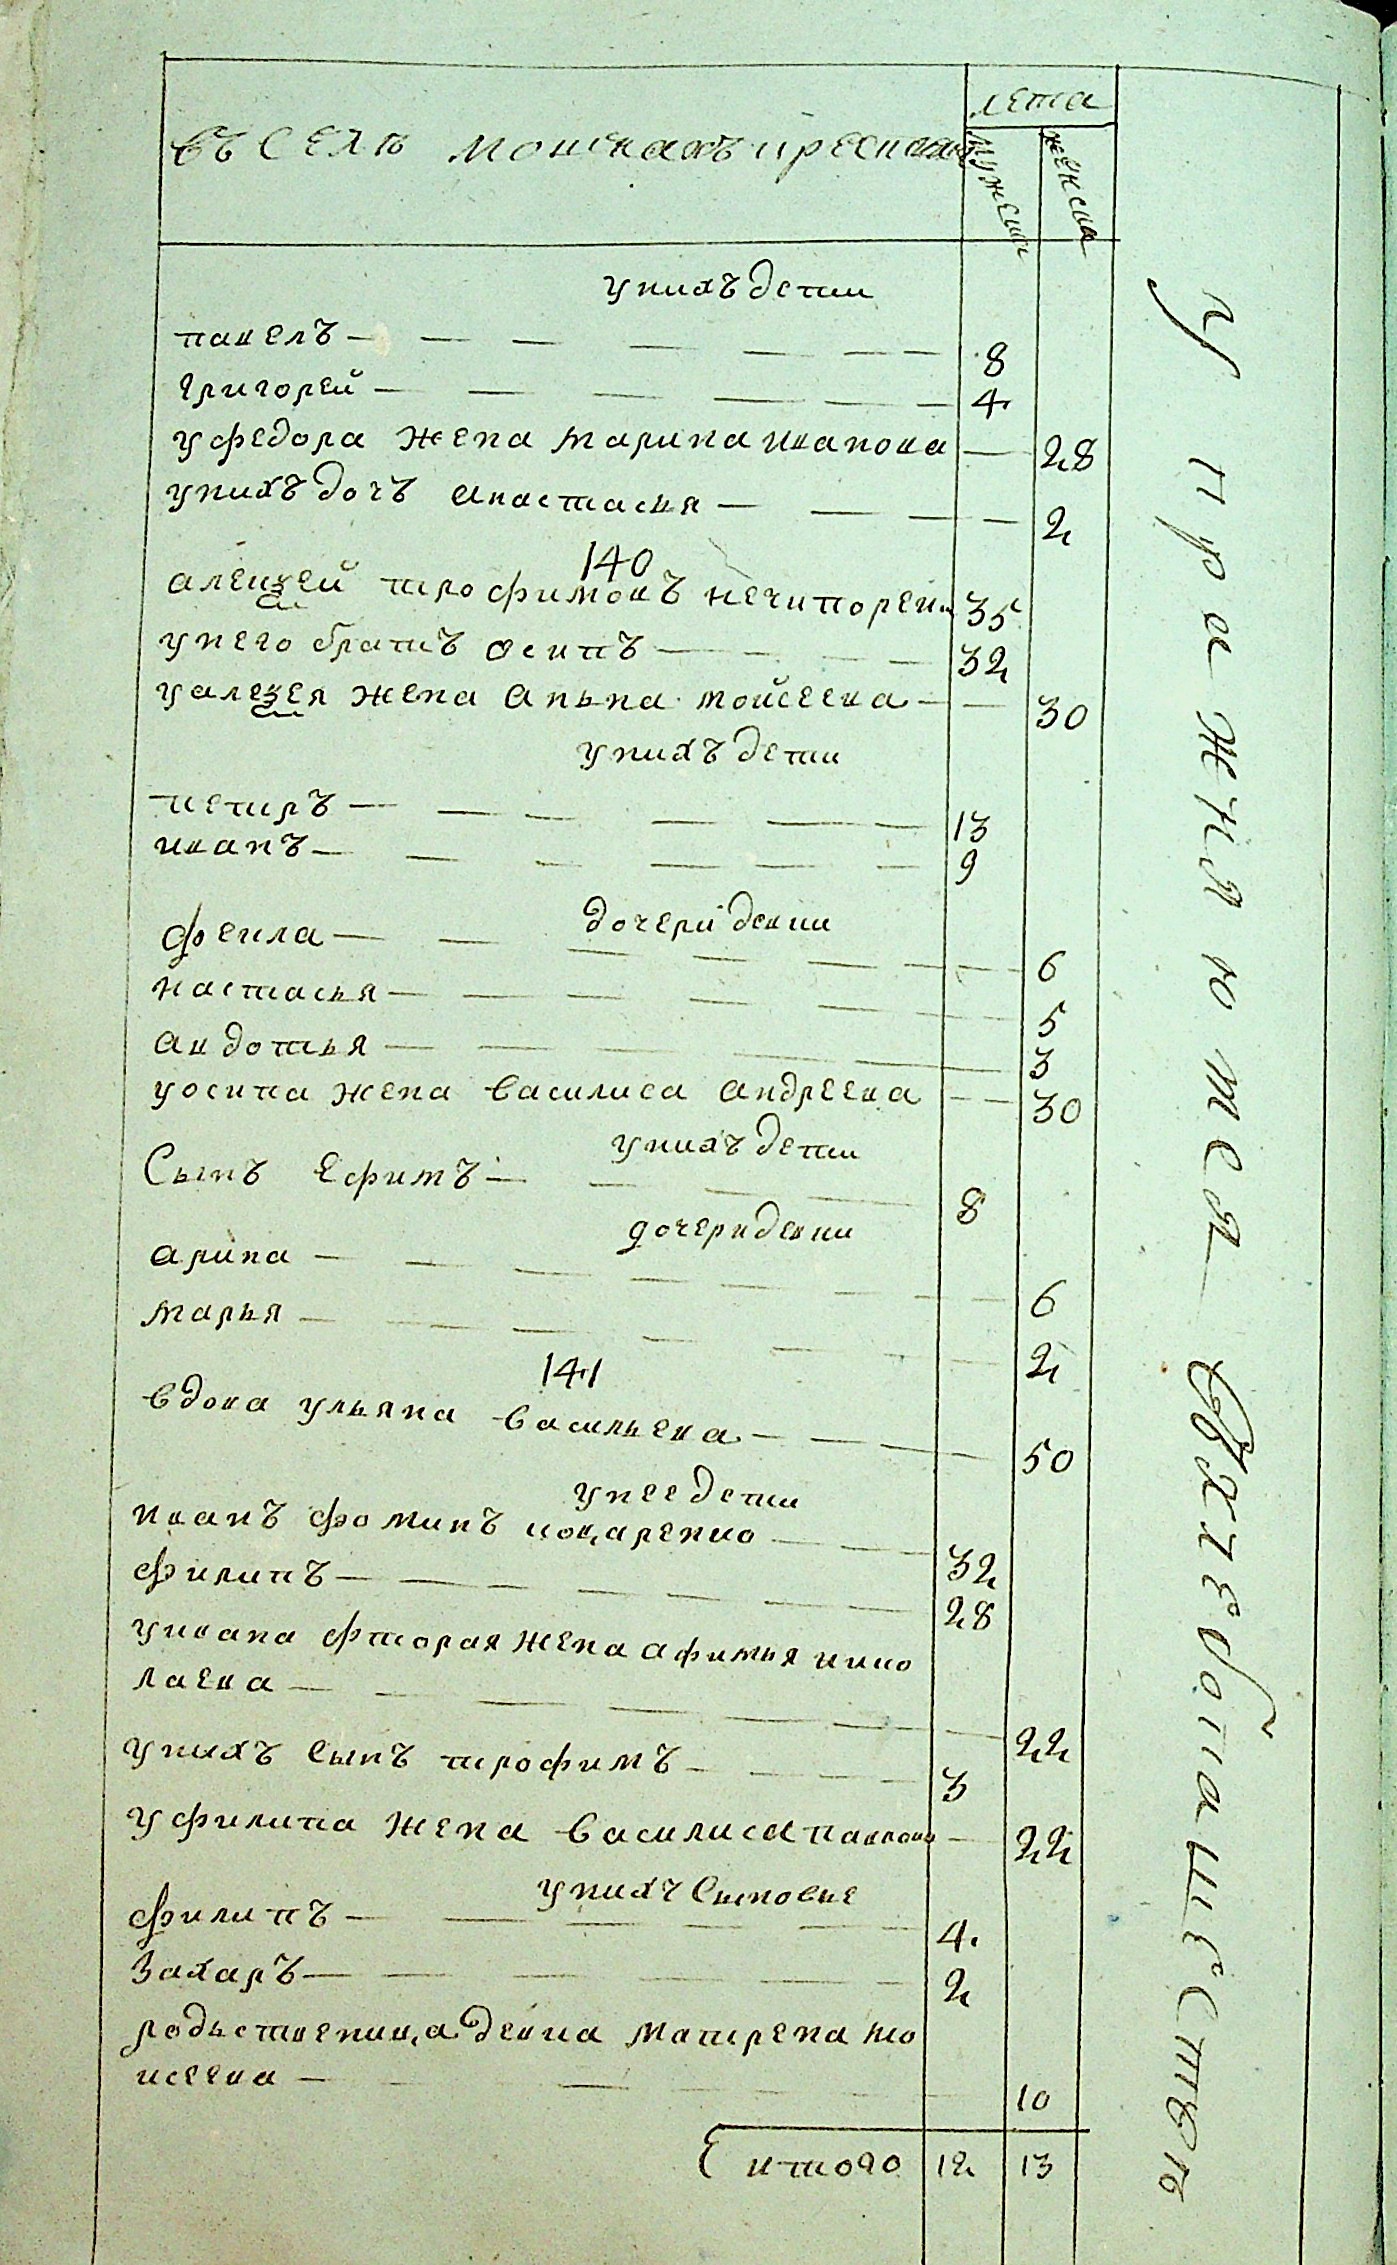 лета
въ селѣ Мошнахъ крестьянъ
мужеска
женска
у нихъ дети
павелъ 8
григорей 4
у федора жена марина иванова 28
у нихъ дочь анастасья 2
140
алексей трофимовъ нечипорен 35
у него братъ осипъ 32
у алексея жена аньна мойсеева 30
у нихъ дети
петръ 13
иванъ 9
дочери девки
фекла 6
настасья 5
авдотья 3
у осипа жена василиса андреева 30
у нихъ дети
Сынъ Ефимъ 8
дочери девки
арина 6
марья 2
141
вдова ульяна васильева 50
у нее дети
иванъ фоминъ коцаренко 32
филипъ 28
у ивана фторая жена афимья нико
лаева 22
у нихъ сынъ трофимъ 3
у филипа жена василиса павлова 22
у нихъ сыновье
филипъ 4
Захаръ 2
родьственица девка матрена мо
исеева 10
итого 12 13
Упражняются въ хлебопашестве